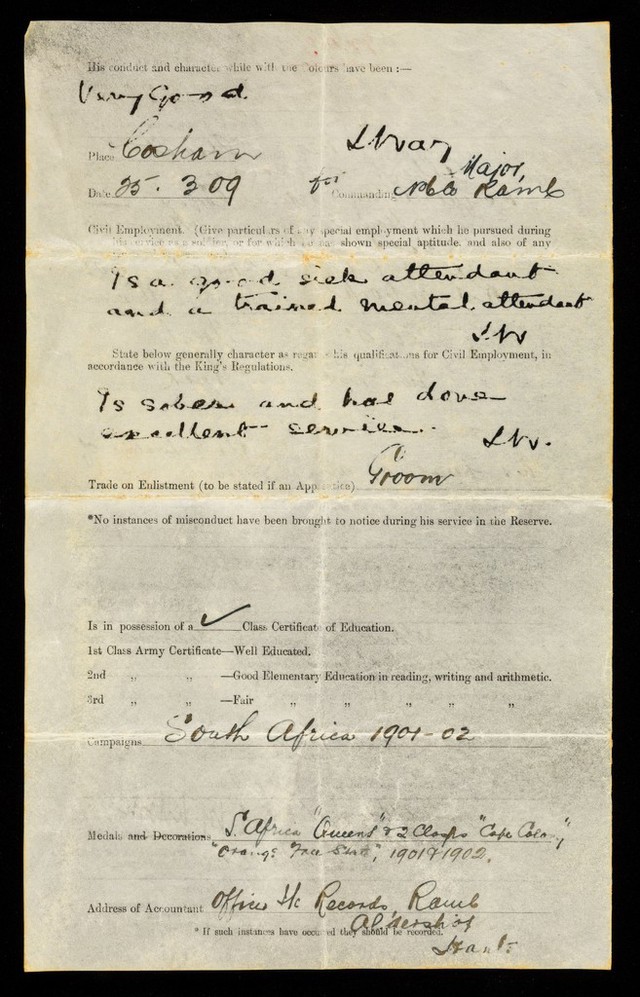 His conduct and character while with the Colours have been :—
Very Good.
Place Cosham
Major,
Date 25. 3 09 for Commanding RAMC
Civil Employment. (Give particulars of any special employment which he pursued during
his service as a soldier, or for which he has shown special aptitude, and also of any
Is a good sick attendant
and a trained mental attendant
State below generally character as regards his qualifications for Civil Employment, in
accordance with the King's Regulations.
Is sober and has done
excellent service.
Trade on Enlistment (to be stated if an Apprentice) Groom
*No instances of misconduct have been brought to notice during his service in the Reserve.
Is in possession of a ✓ Class Certificate of Education.
1st Class Army Certificate—Well Educated.
2nd „ „ —Good Elementary Education in reading, writing and arithmetic.
3rd „ „ —Fair „ „ „ „ „
Campaigns South Africa 1901-02
Medals and Decorations S. Africa "Queens" & 2 Clasps "Cape Colony"
"Orange Free State", 1901 & 1902.
Address of Accountant Office i/c Records, RAMC
Aldershot
* If such instances have occurred they should be recorded.
Hants